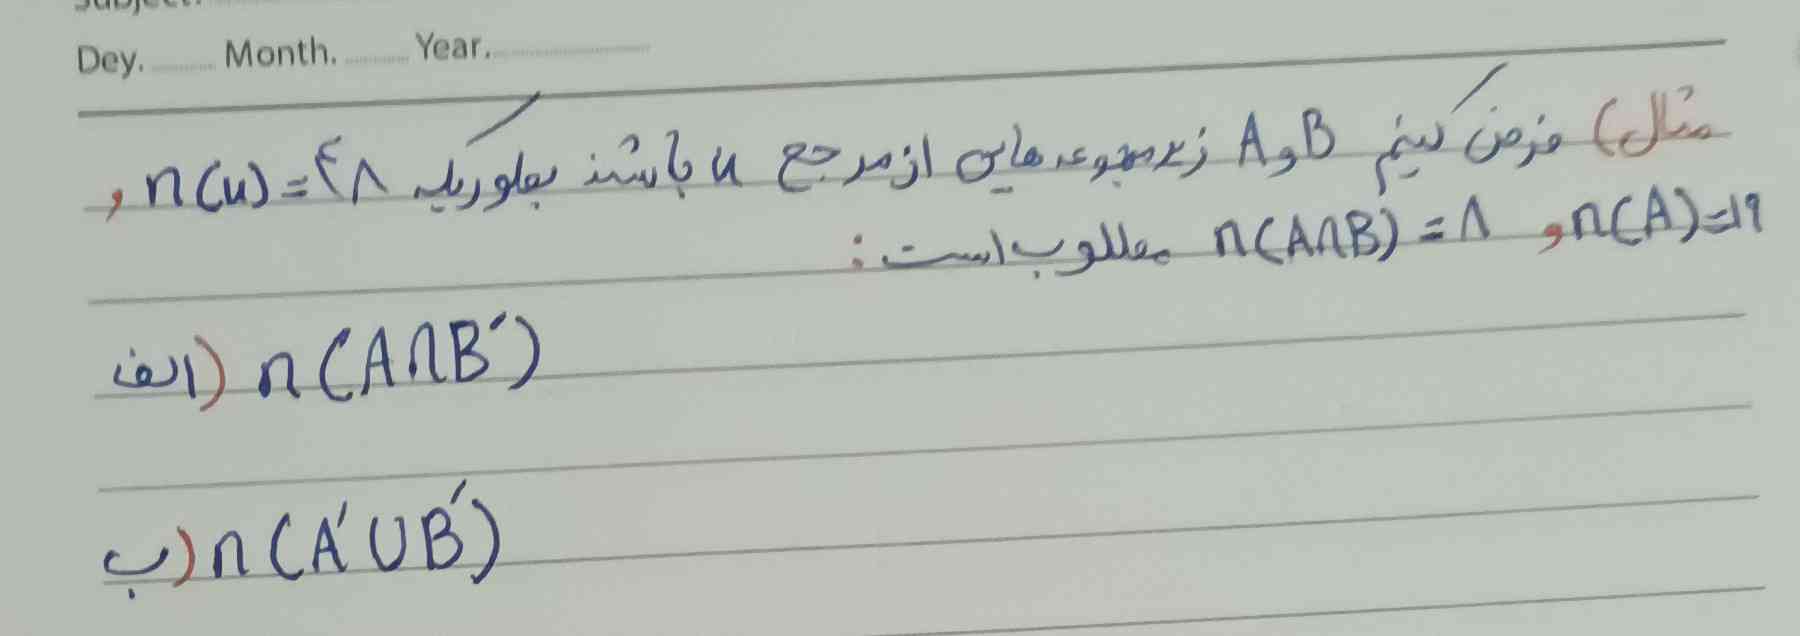 Subject.
Dey. Month. Year.
مثال) فرض کنیم A و B زیرمجموعه هایی از مرجع u باشند بطوریکه n(u)=۴۸ و
n(A)=۱۹ و n(A∩B)=۸ مطلوب است:
الف) n(A∩B′)
ب) n(A′∪B′)